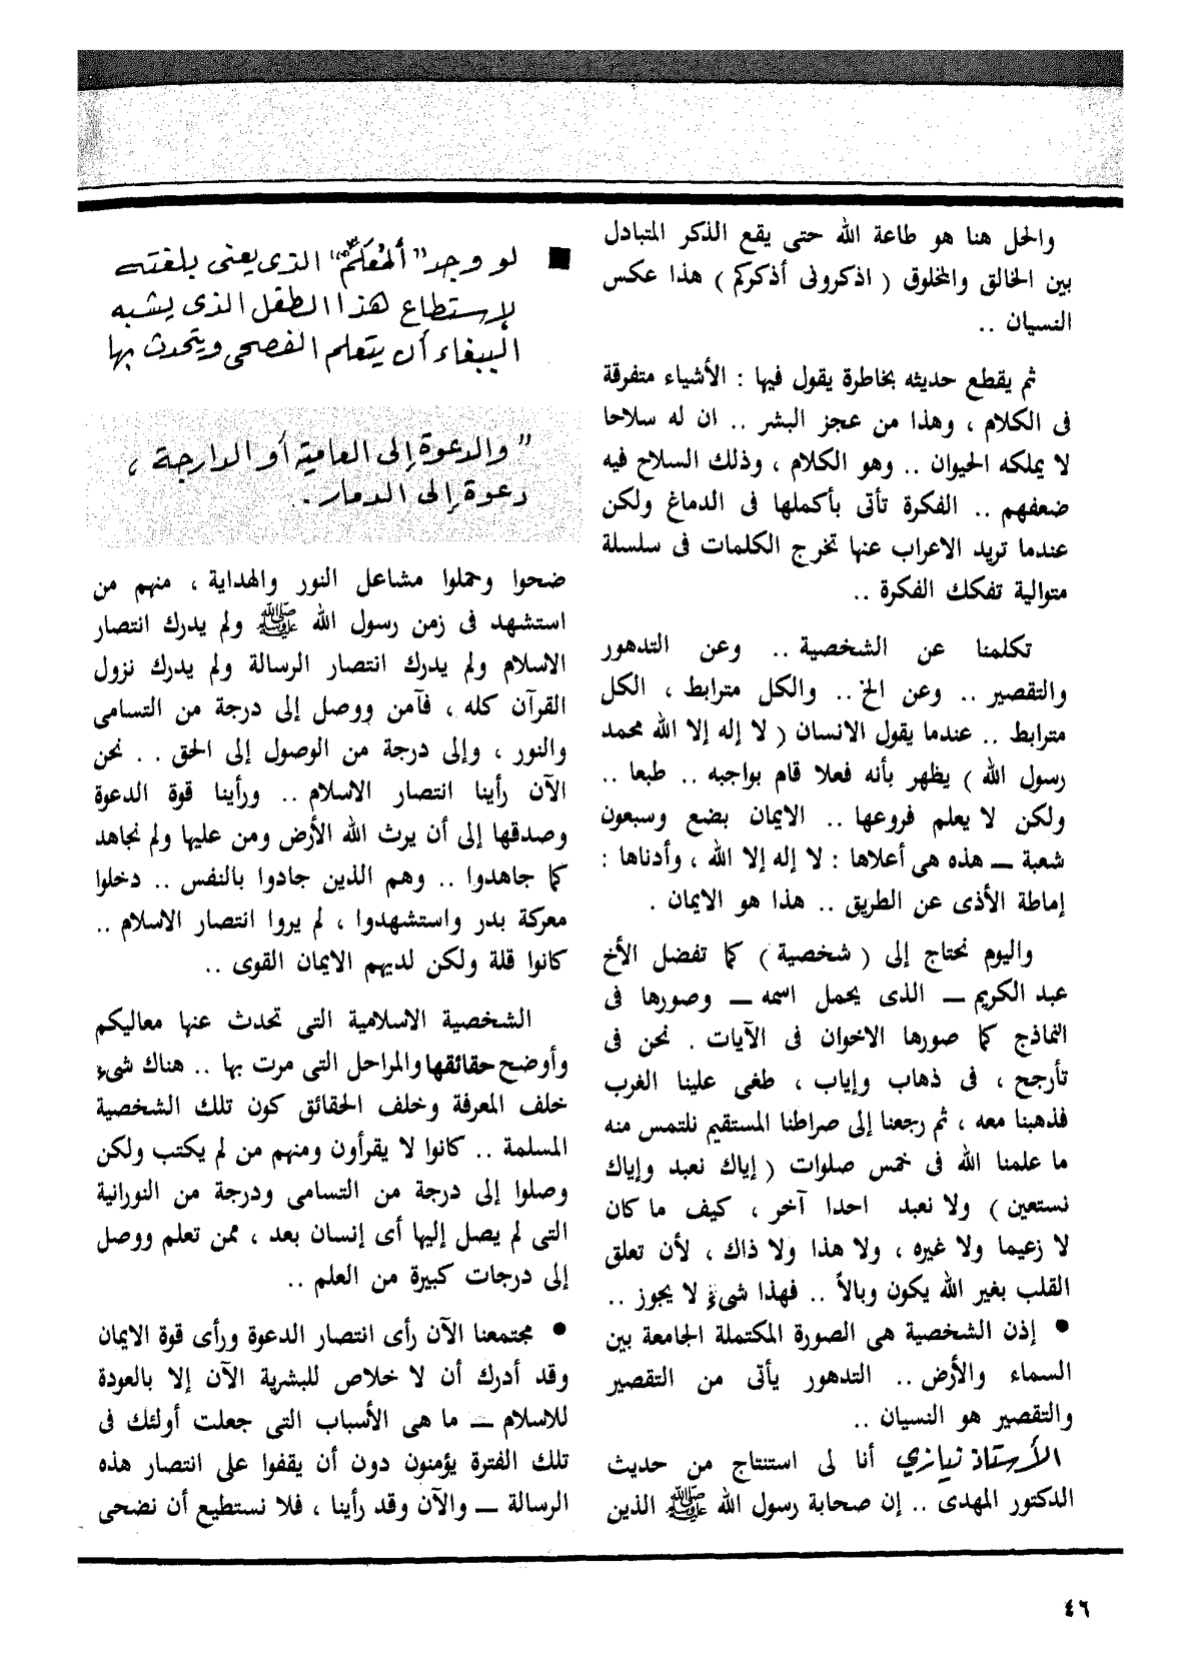 والحل هنا هو طاعة الله حتى يقع الذكر المتبادل
بين الخالق والمخلوق ( اذكرونى أذكركم ) هذا عكس
النسيان ..
ثم يقطع حديثه بخاطرة يقول فيها : الأشياء متفرقة
فى الكلام ، وهذا من عجز البشر .. ان له سلاحا
لا يملكه الحيوان .. وهو الكلام ، وذلك السلاح فيه
ضعفهم .. الفكرة تأتى بأكملها فى الدماغ ولكن
عندما تريد الاعراب عنها تخرج الكلمات فى سلسلة
متوالية تفكك الفكرة ..
تكلمنا عن الشخصية .. وعن التدهور
والتقصير .. وعن الخ .. والكل مترابط ، الكل
مترابط .. عندما يقول الانسان ( لا إله إلا الله محمد
رسول الله ) يظهر بأنه فعلا قام بواجبه .. طبعا ..
ولكن لا يعلم فروعها .. الايمان بضع وسبعون
شعبة — هذه هى أعلاها : لا إله إلا الله ، وأدناها :
إماطة الأذى عن الطريق .. هذا هو الايمان .
واليوم نحتاج إلى ( شخصية ) كما تفضل الأخ
عبد الكريم — الذى يحمل اسمه — وصورها فى
النماذج كما صورها الاخوان فى الآيات . نحن فى
تأرجح ، فى ذهاب وإياب ، طغى علينا الغرب
فذهبنا معه ، ثم رجعنا إلى صراطنا المستقيم نلتمس منه
ما علمنا الله فى خمس صلوات ( إياك نعبد وإياك
نستعين ) ولا نعبد احدا آخر ، كيف ما كان
لا زعيما ولا غيره ، ولا هذا ولا ذاك ، لأن تعلق
القلب بغير الله يكون وبالاً .. فهذا شىء لا يجوز ..
● إذن الشخصية هى الصورة المكتملة الجامعة بين
السماء والأرض .. التدهور يأتى من التقصير
والتقصير هو النسيان ..
الأستاذ نيازي أنا لى استنتاج من حديث
الدكتور المهدى .. إن صحابة رسول الله ﷺ الذين
■ لو وجد "المُعَلِّم" الذى يعنى بلغته
لإستطاع هذا الطفل الذى يشبه
الببغاء أن يتعلم الفصحى ويتحدث بها
" والدعوة إلى العامية أو الدارجة ،
دعوة إلى الدمار ..
ضحوا وحملوا مشاعل النور والهداية ، منهم من
استشهد فى زمن رسول الله ﷺ ولم يدرك انتصار
الاسلام ولم يدرك انتصار الرسالة ولم يدرك نزول
القرآن كله ، فآمن ووصل إلى درجة من التسامى
والنور ، وإلى درجة من الوصول إلى الحق . . نحن
الآن رأينا انتصار الاسلام .. ورأينا قوة الدعوة
وصدقها إلى أن يرث الله الأرض ومن عليها ولم نجاهد
كما جاهدوا .. وهم الذين جادوا بالنفس .. دخلوا
معركة بدر واستشهدوا ، لم يروا انتصار الاسلام ..
كانوا قلة ولكن لديهم الايمان القوى ..
الشخصية الاسلامية التى تحدث عنها معاليكم
وأوضح حقائقها والمراحل التى مرت بها .. هناك شىء
خلف المعرفة وخلف الحقائق كون تلك الشخصية
المسلمة .. كانوا لا يقرأون ومنهم من لم يكتب ولكن
وصلوا إلى درجة من التسامى ودرجة من النورانية
التى لم يصل إليها أى إنسان بعد ، ممن تعلم ووصل
إلى درجات كبيرة من العلم ..
● مجتمعنا الآن رأى انتصار الدعوة ورأى قوة الايمان
وقد أدرك أن لا خلاص للبشرية الآن إلا بالعودة
للاسلام — ما هى الأسباب التى جعلت أولئك فى
تلك الفترة يؤمنون دون أن يقفوا على انتصار هذه
الرسالة — والآن وقد رأينا ، فلا نستطيع أن نضحى
٤٦